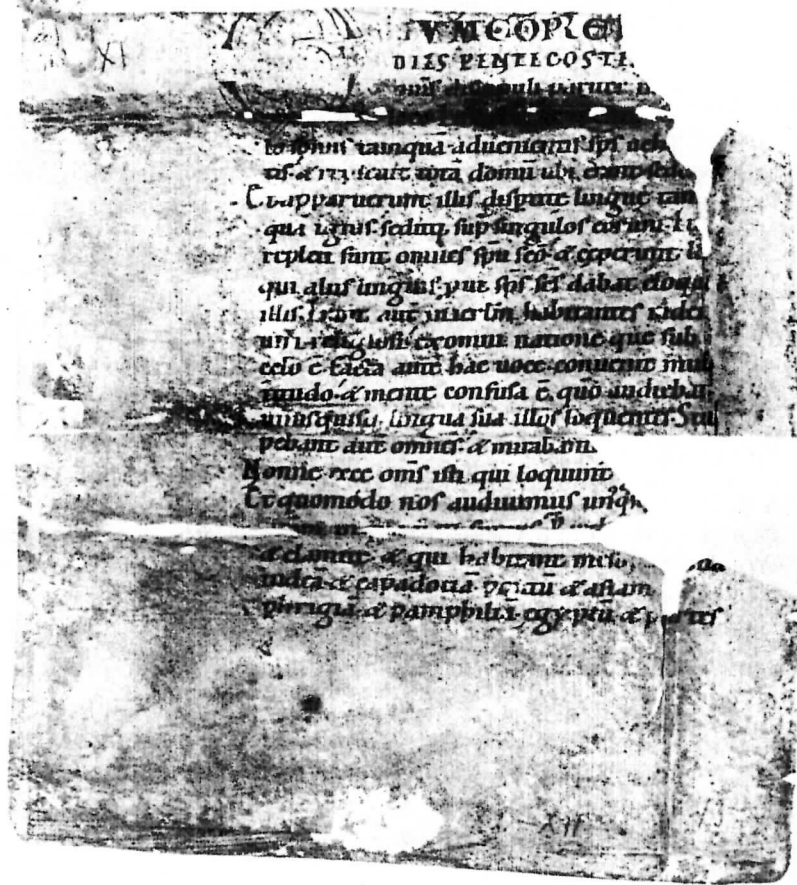 XI
VM COPLE
DIES PENTECOSTE
to sonus tamquā aduenientis sp̄s ueh
tis & repleuit totā domū ubi erant sede
Et apparuerunt illis dispite lingue tam
quā ignis seditq; sup singulos eorum. Et
repleti sunt omnes sp̄u sc̄o & ceperunt lo
qui aliis linguis put sp̄s sc̄s dabat eloqui
illis. Erant aut in ierlm̄ habitantes iudei
uiri religiosi ex omni natione que sub
celo ē. Facta autē hac uoce conuenit mul
titudo & mente confusa ē. quō audiebat
unusquisq; lingua sua illos loquentes. Stu
pebant aut omnes & mirabant
Nonne ecce om̄s isti qui loquunt
Et quomodo nos audiuimus unqsq
& elamite & qui habitant meso
iudeā & capadociā pontū & asiam
phrigiā & pamphiliā egyptū & partes
XII